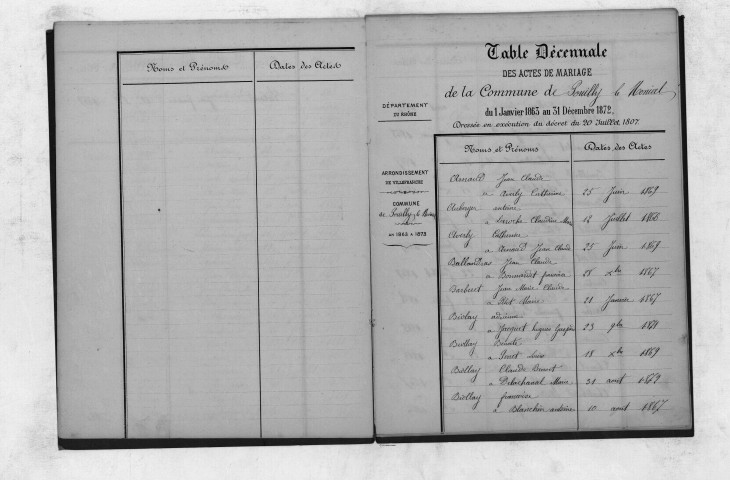 Noms et Prénoms
Dates des Actes
Table Décennale
DES ACTES DE MARIAGE
de la Commune de Pouilly le Monial
du 1 Janvier 1863 au 31 Décembre 1872,
Dressée en exécution du décret du 20 Juillet 1807.
DÉPARTEMENT
DU RHÔNE
ARRONDISSEMENT
DE VILLEFRANCHE
COMMUNE
de Pouilly le Monial
DE 1863 A 1873
Noms et Prénoms
Dates des Actes
Arnaud Jean Claude
a Averly Catherine 25 Juin 1869
Auberger antoine
a Laroche Claudine 12 Juillet 1868
Averly Catherine
a Arnaud Jean Claude 25 Juin 1869
Jean Claude
a 28 xbre 1867
Jean Marie Claude
a Marie 21 Janvier 1867
Biolay
a Jacquet 23 9bre
Biollay Benoît
a Perret 18 xbre 1869
Biollay Claude Benoit
a Marie 31 aout
Biollay françoise
a Blanchin antoine 10 aout 1867